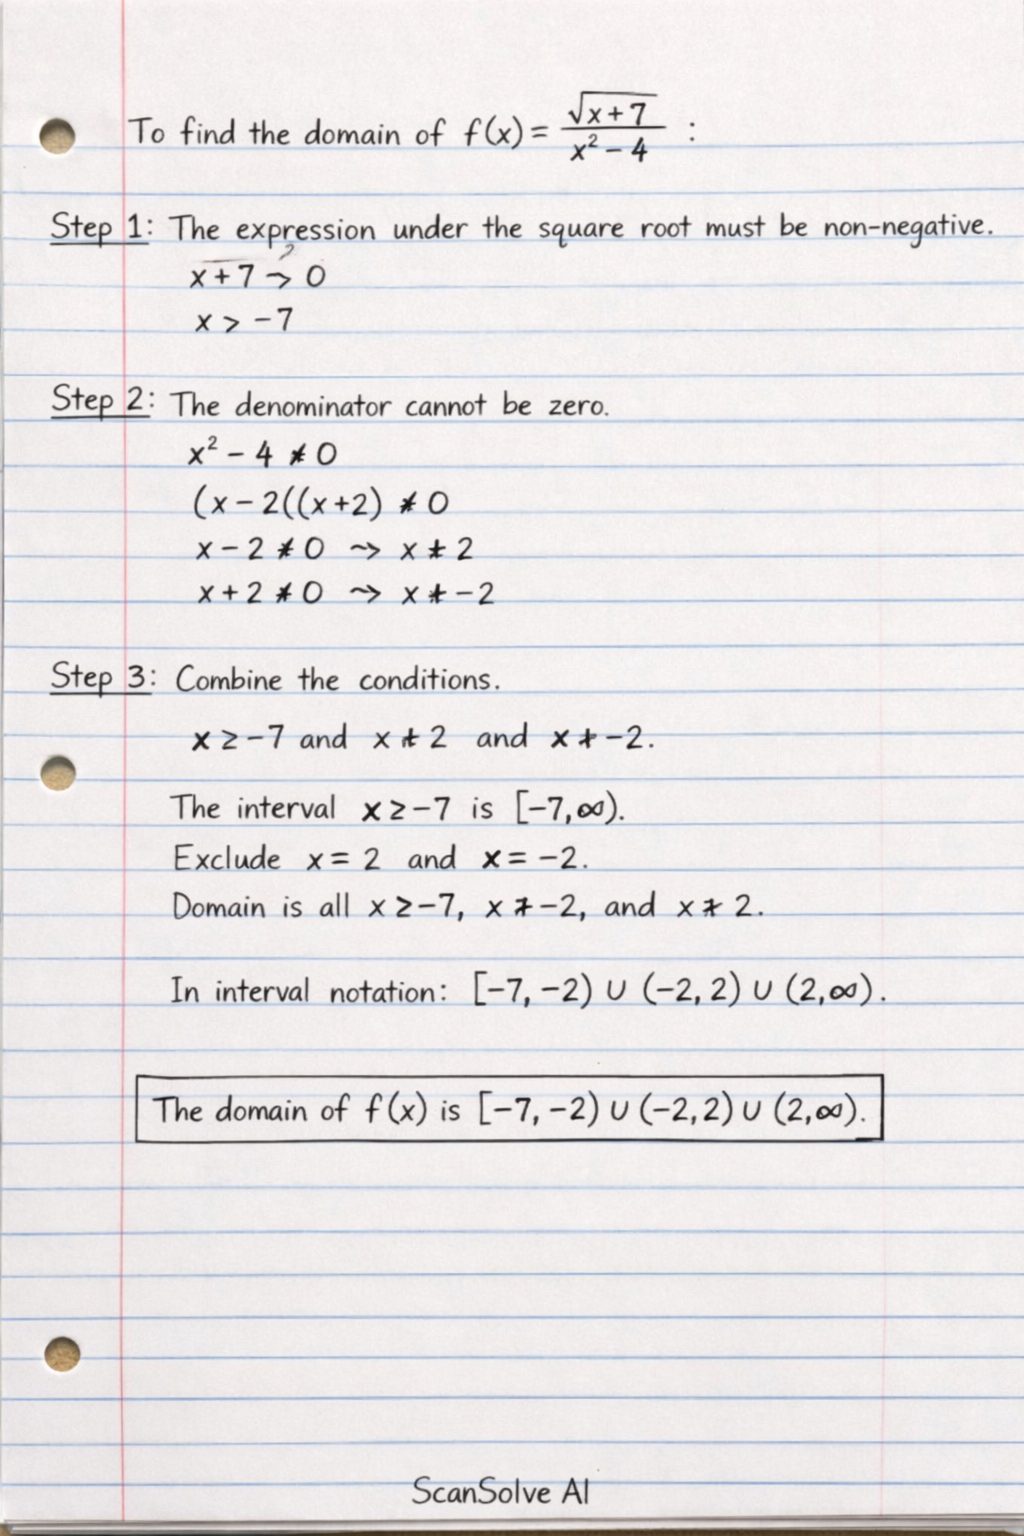 To find the domain of f(x) = √(x+7) / (x² − 4) :
Step 1: The expression under the square root must be non-negative.
x + 7 → 0
x > −7
Step 2: The denominator cannot be zero.
x² − 4 ≠ 0
(x − 2((x+2) ≠ 0
x − 2 ≠ 0 ~> x ≠ 2
x + 2 ≠ 0 ~> x ≠ −2
Step 3: Combine the conditions.
x ≥ −7 and x ≠ 2 and x ≠ −2.
The interval x ≥ −7 is [−7, ∞).
Exclude x = 2 and x = −2.
Domain is all x ≥ −7, x ≠ −2, and x ≠ 2.
In interval notation: [−7, −2) ∪ (−2, 2) ∪ (2, ∞).
The domain of f(x) is [−7, −2) ∪ (−2, 2) ∪ (2, ∞).
ScanSolve AI